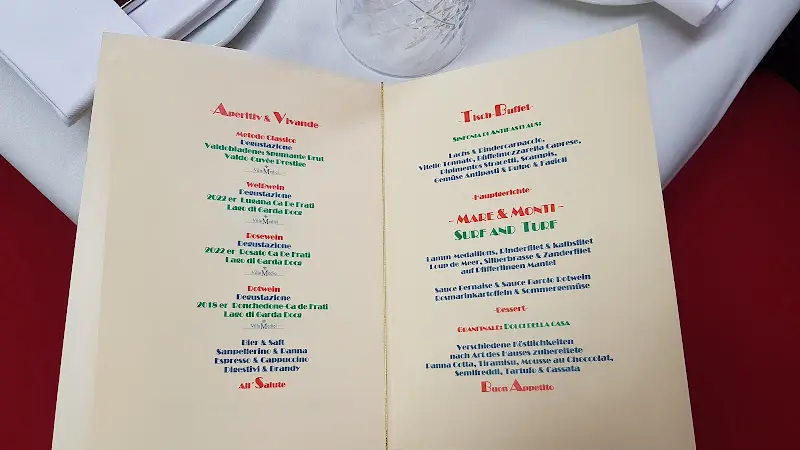 Aperitiv & Vivande
Metodo Classico
Degustazione
Valdobiadene: Spumante Brut
Valdo Cuvée Prestige
Villa Medici
Weißwein
Degustazione
2022 er Lugana Ca De Frati
Lago di Garda Docg
Villa Medici
Rosewein
Degustazione
2022 er Rosato Ca De Frati
Lago di Garda Docg
Villa Medici
Rotwein
Degustazione
2018 er Ronchedone-Ca de Frati
Lago di Garda Docg
Villa Medici
Bier & Saft
Sanpellerino & Panna
Espresso & Cappuccino
Digestivi & Brandy
All´Salute
Tisch-Buffet-
Sinfonia di Antipasti aus:
Lachs & Rindercarpaccio,
Vitello Tonnato, Büffelmozzarella Caprese,
Pipimentos Stracetti, Scampis,
Gemüse Antipasti & Pulpo & Fagioli
-Hauptgerichte-
- MARE & MONTI -
SURF AND TURF
Lamm Medaillons, Rinderfilet & Kalbsfilet
Loup de Meer, Silberbrasse & Zanderfilet
auf Pfifferlingen Mantel
Sauce Bernaise & Sauce Barolo Rotwein
Rosmarinkartoffeln & Sommergemüse
-Dessert-
Granfinale: Dolci della casa
Verschiedene Köstlichkeiten
nach Art des Hauses zubereitete
Panna Cotta, Tiramisu, Mousse au Chocolat,
Semifreddi, Tartufo & Cassata
Buon Appetito